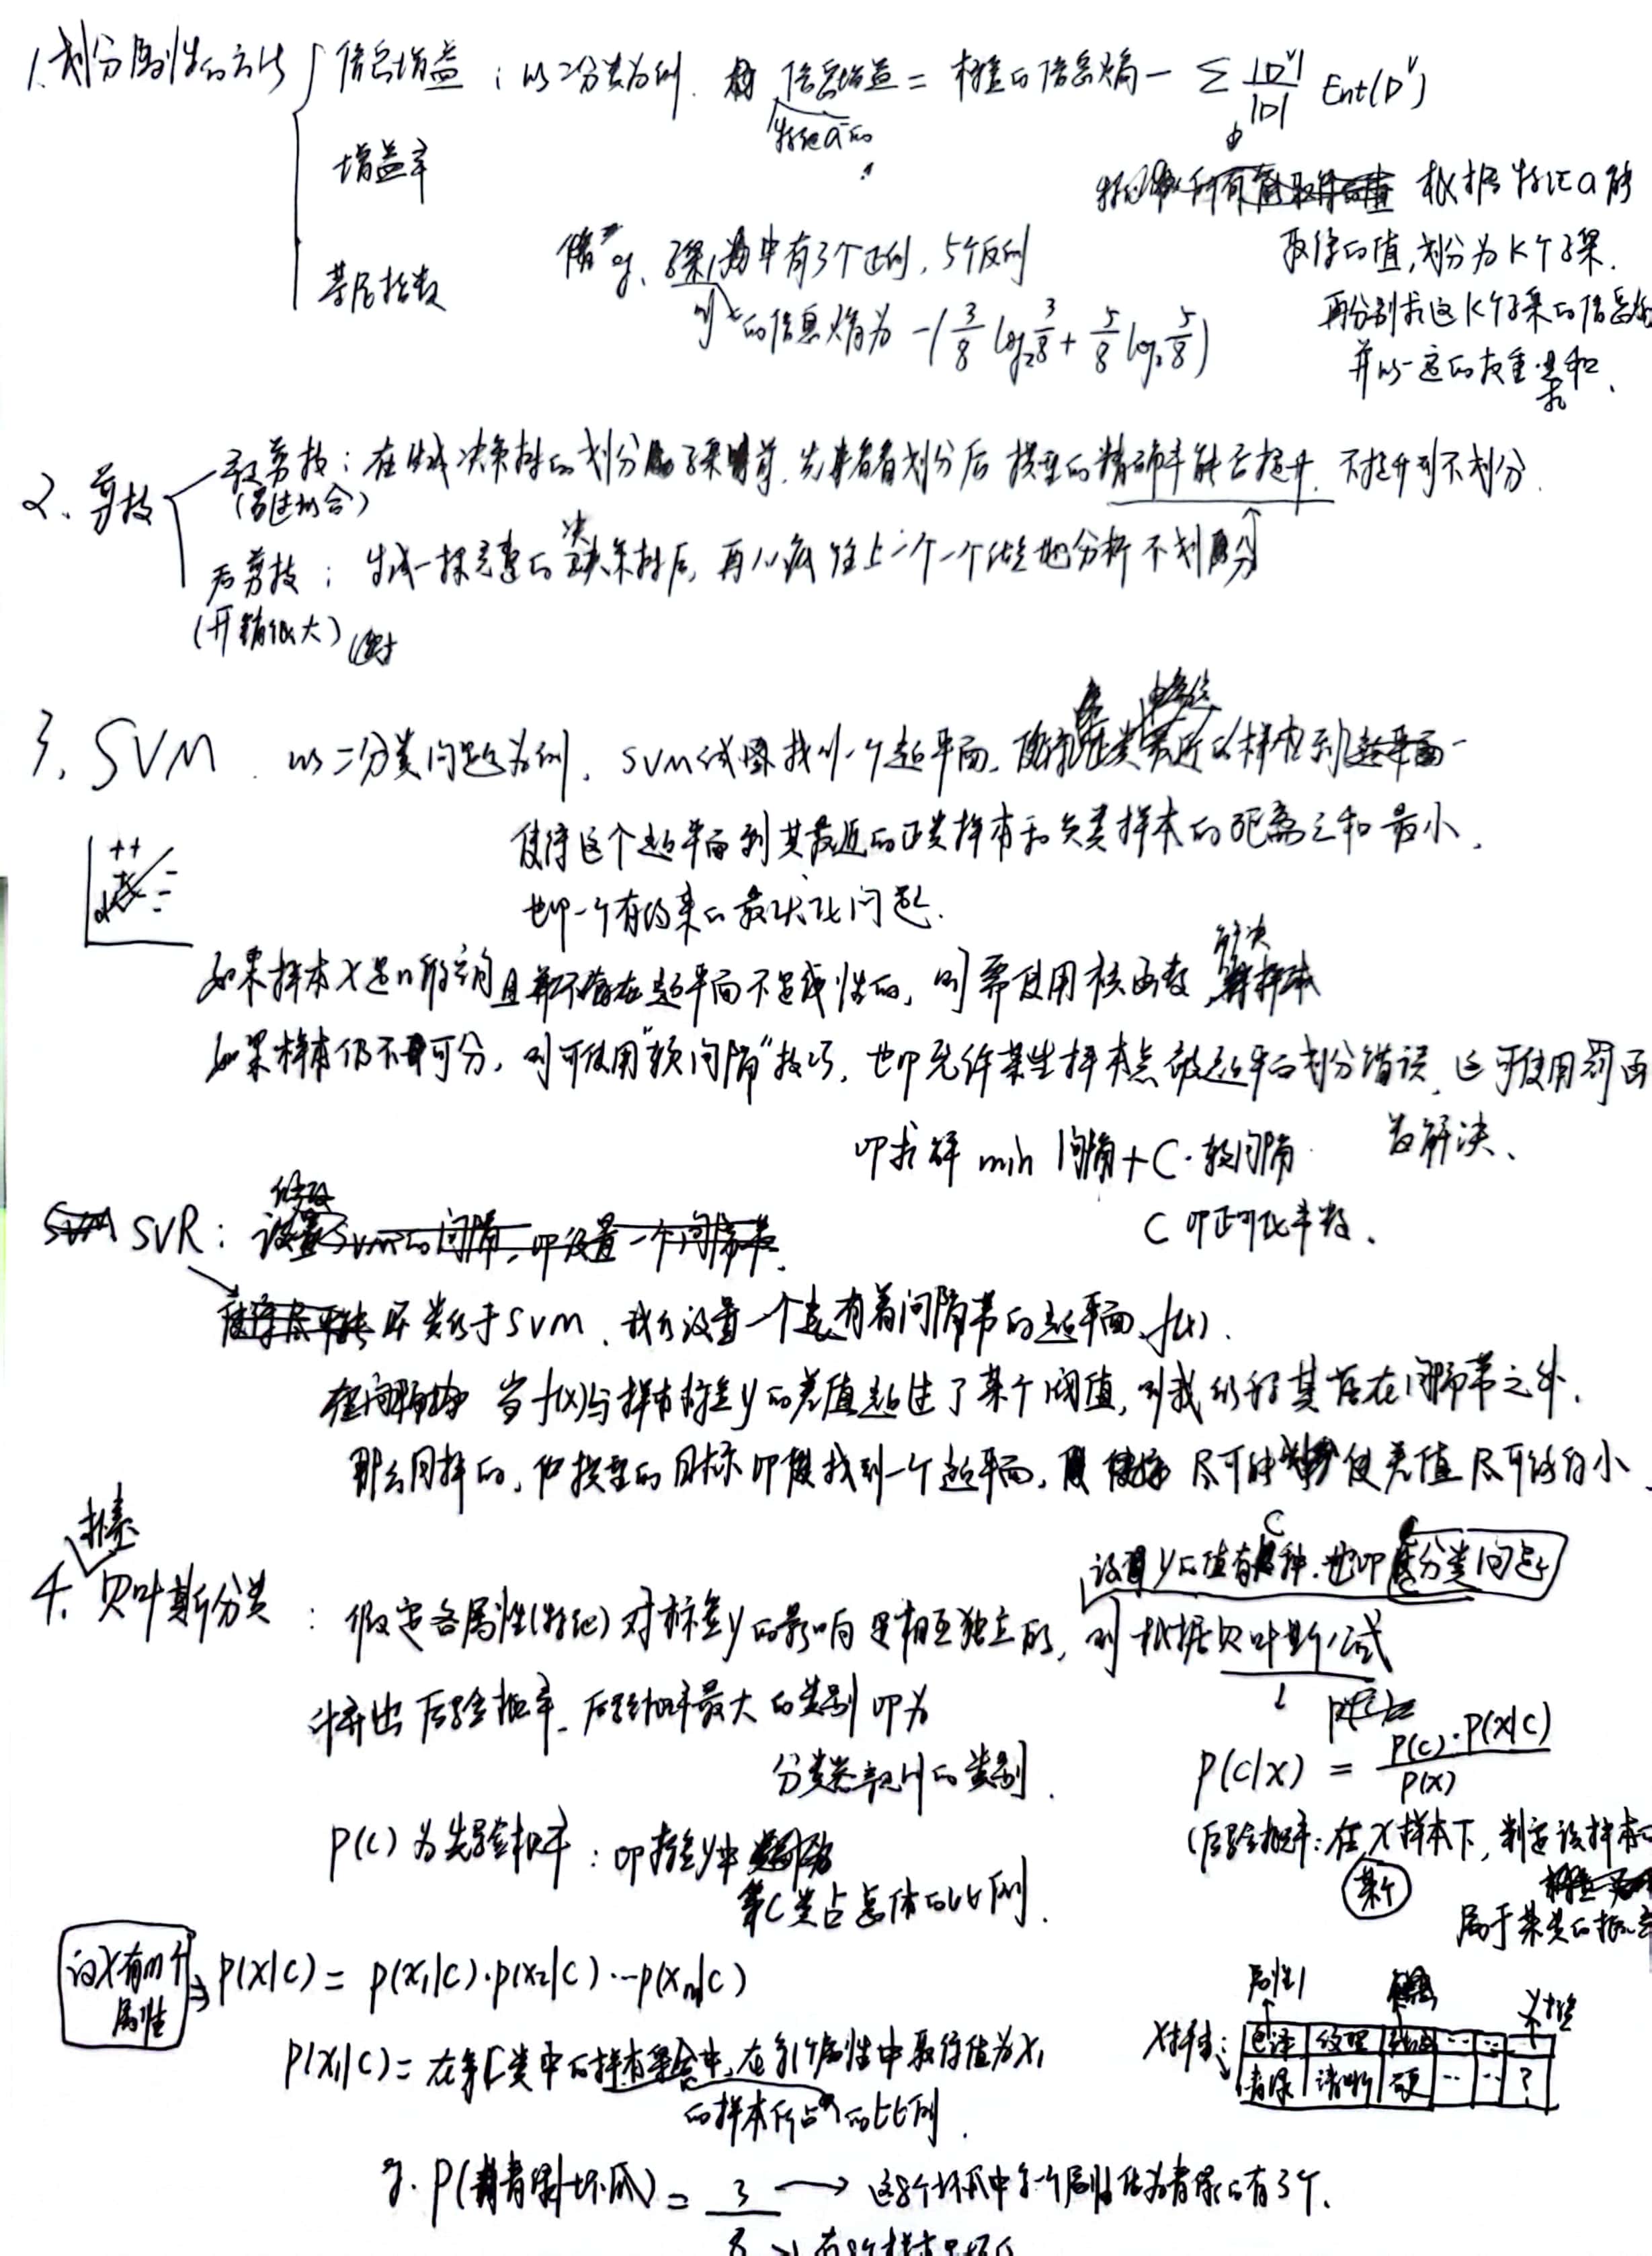 1. 划分属性的方法 { 信息增益 : 以二分类为例. 信息增益 = 标签的信息熵 - ∑ |Dᵛ|/|D| Ent(Dᵛ)
特征a的
增益率
根据特征a所
取得的值,划分为K个子集.
eg. 子集1中有3个正例, 5个反例
基尼指数
再分别求这K个子集的信息熵
则 的信息熵为 -(3/8 log₂3/8 + 5/8 log₂5/8)
并以一定的权重求和.
2. 剪枝
预剪枝: 在生成决策树的划分子集前, 先看看划分后模型的精确率能否提升. 不提升则不划分.
(易过拟合)
后剪枝: 生成一棵完整的决策树后, 再从底往上一个一个结点地分析不划分
(开销很大)
3. SVM. 以二分类问题为例. SVM试图找到一个超平面,
使得这个超平面到其最近的正类样本和负类样本的距离之和最小.
也即一个有约束的最优化问题.
如果样本X是n维的且不是线性的, 则需使用核函数解决
如果样本仍不可分, 则可使用"软间隔"技巧, 也即允许某些样本点被超平面划分错误, 这可使用罚函
数解决.
即求解 min 间隔 + C·软间隔
C即正则化参数.
SVR:
类似于SVM, 我们设置一个有着间隔带的超平面f(x).
当f(x)与样本标签y的差值超过了某个阈值, 则我们称其落在间隔带之外.
那么同样的, 模型的目标即找到一个超平面, 尽可能使差值尽可能的小.
朴素
4. 贝叶斯分类
设y的值有C种. 也即多分类问题
: 假定各属性(特征)对标签y的影响是相互独立的, 则根据贝叶斯公式
计算出后验概率. 后验概率最大的类别即为
分类器预测的类别.
P(C|X) = P(C)·P(X|C) / P(X)
P(C) 为先验概率: 即标签y中
第C类占总体的比例.
(后验概率: 在X样本下, 判定该样本
某个
属于某类的概率
设X有m个
属性
⇒ P(X|C) = P(x₁|C)·P(x₂|C)···P(xₘ|C)
属性1
y标签
X样本:
色泽 纹理 ·· ··
青绿 清晰 硬 ·· ·· ?
P(x₁|C) = 在第C类中的样本集合中, 在第1个属性中取得值为x₁
的样本所占的比例.
eg. P(青绿|坏瓜) = 3/8 → 这8个坏瓜中第一个属性值为青绿的有3个.